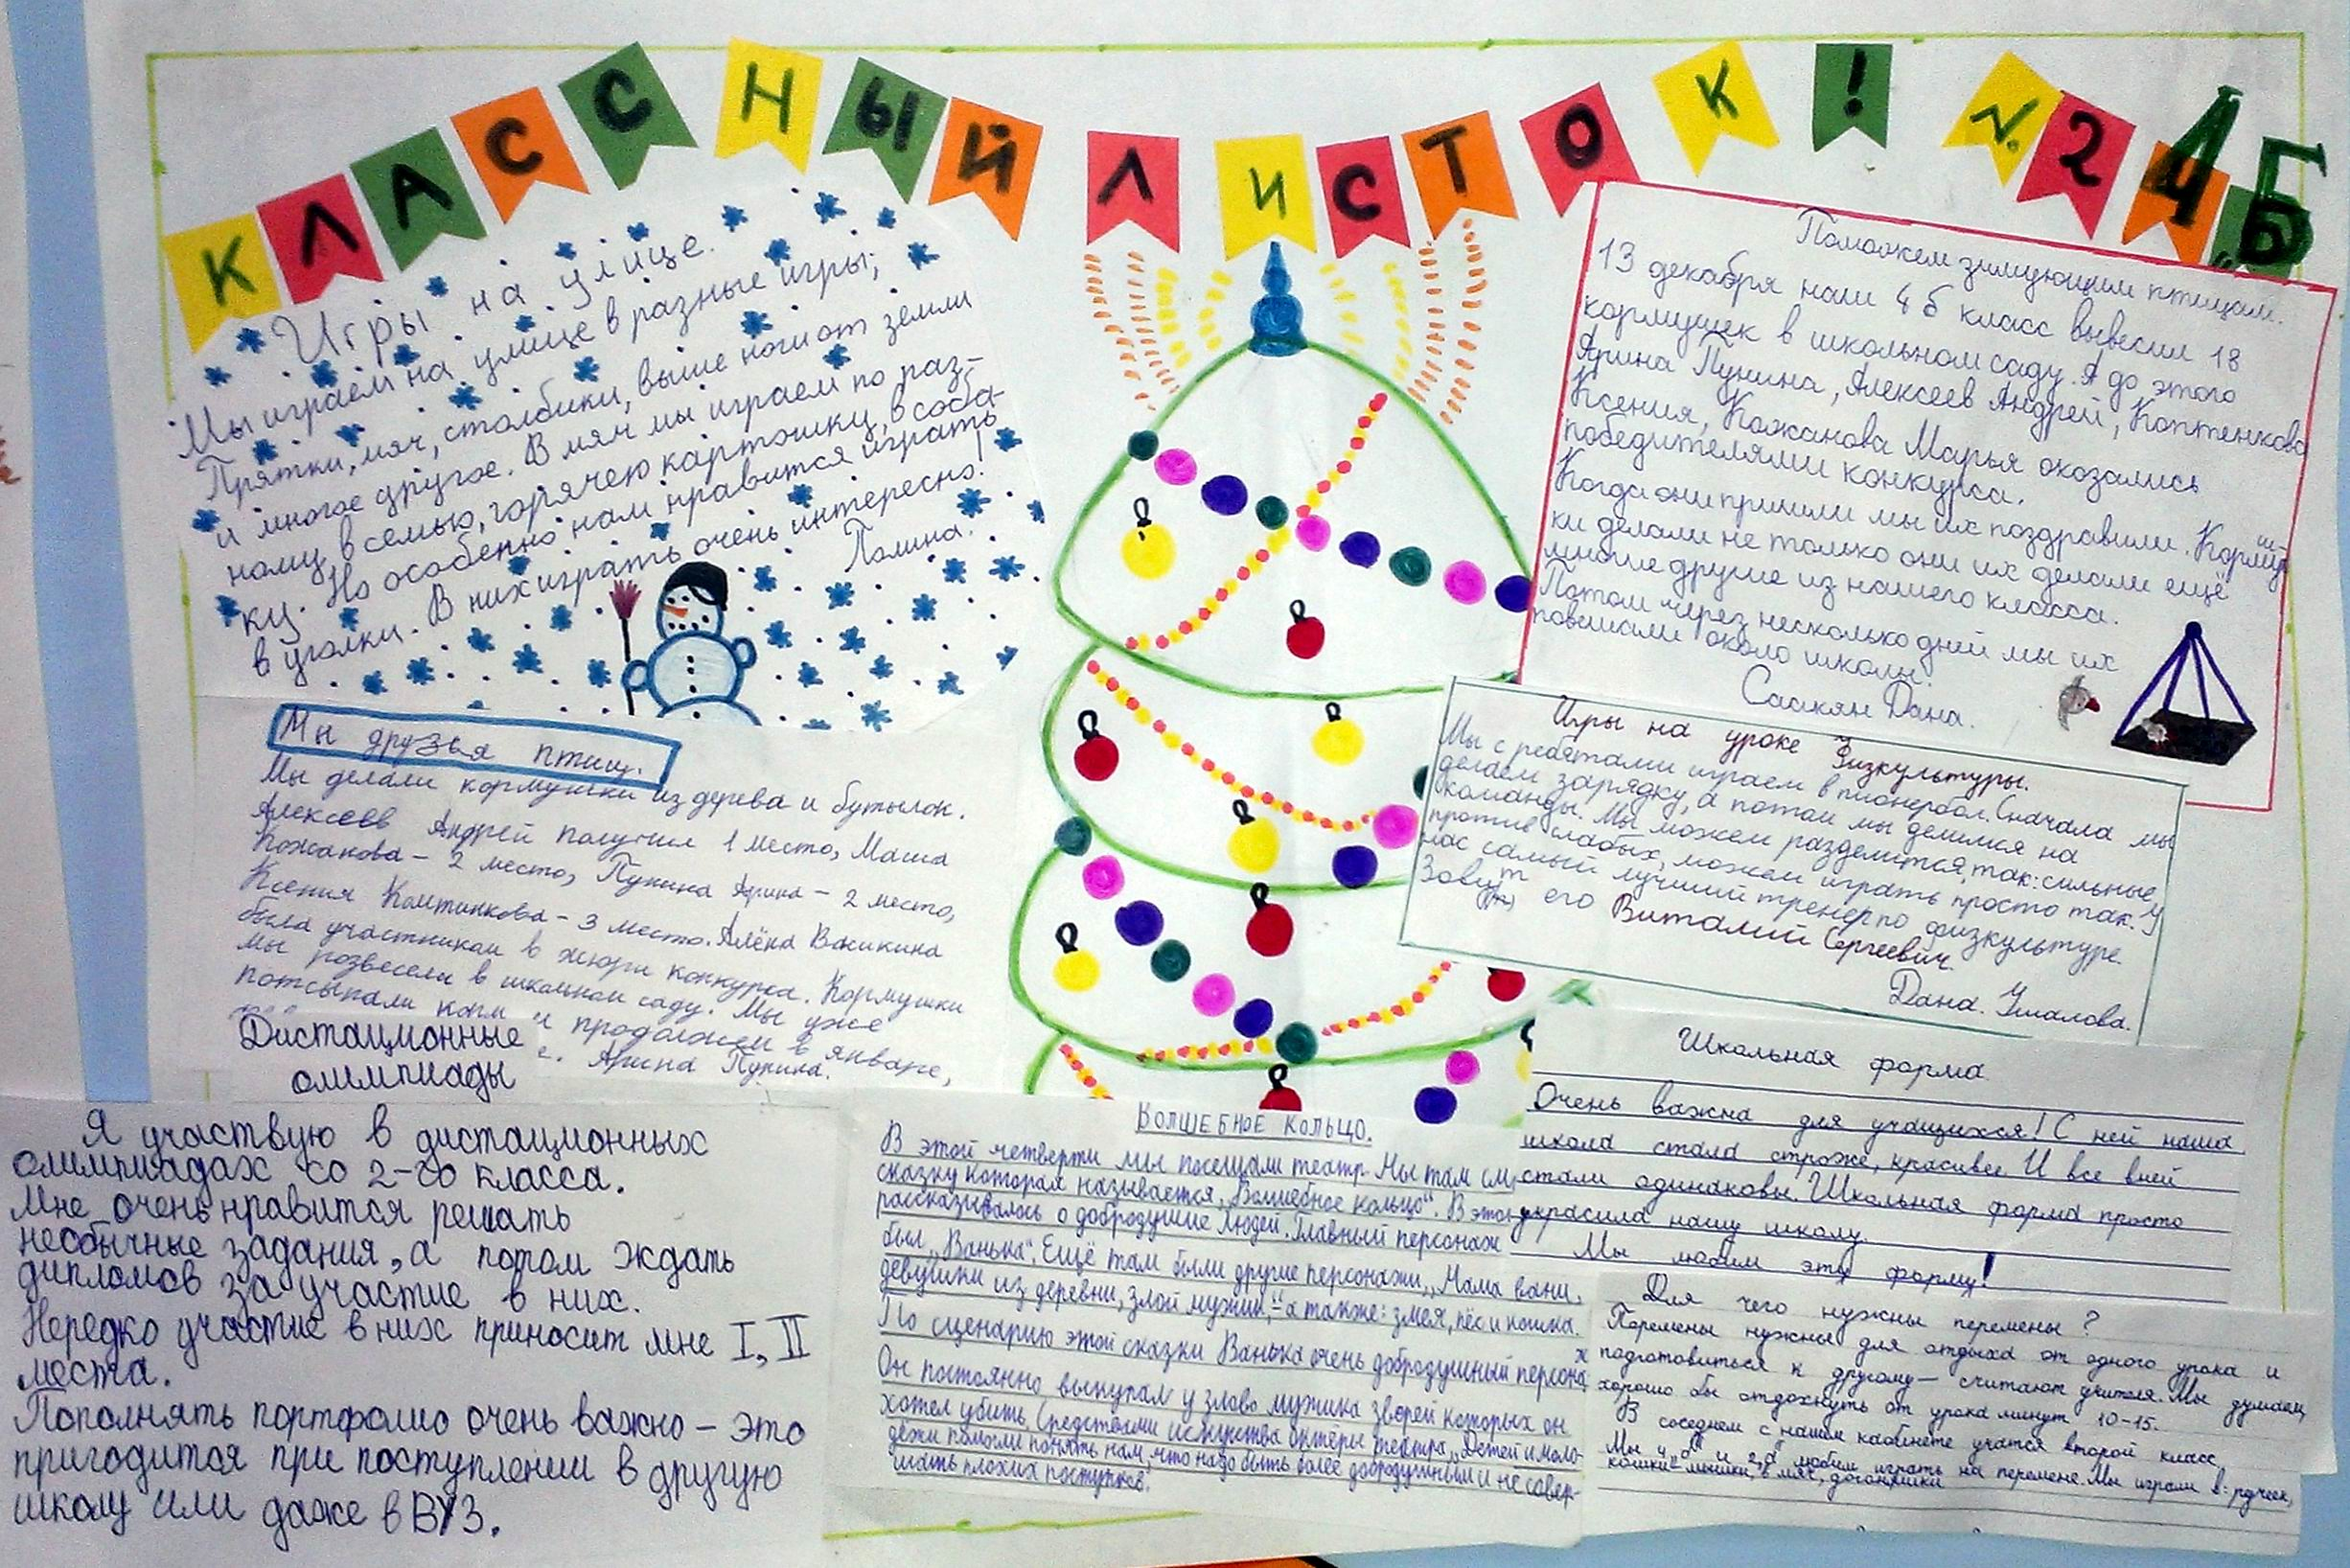 КЛАССНЫЙ ЛИСТОК! №2 4 „Б
Игры на улице.
Мы играем на улице в разные игры;
Прятки, мяч, столбики, выше ноги от земли
и многое другое. В мяч мы играем по раз-
ному, в семью, горячею картошку, в соба-
ку. Но особенно нам нравится играть
в уголки. В них играть очень интересно!
Полина.
Поможем зимующим птицам.
13 декабря наш 4 б класс вывесил 18
кормушек в школьном саду. А до этого
Арина Пунина, Алексеев Андрей, Коптенкова
Ксения, Кожанова Марья оказались
победителями конкурса.
Когда они пришли мы их поздравили. Кормуш
ки делали не только они их делали ещё
многие другие из нашего класса.
Потом через несколько дней мы их
повешали около школы.
Саакян Дана.
Мы друзья птиц.
Мы делали кормушки из дерева и бутылок.
Алексеев Андрей получил 1 место, Маша
Кожанова – 2 место, Пунина Арина – 2 место,
Ксения – 3 место. Алёна Васикина
была участником в жюри конкурса. Кормушки
мы розвесели в школьном саду. Мы уже
потсыпали корм и продолжем в январе,
е. Арина Пунина.
Игры на уроке Физкультуры.
Мы с ребятами играем в пионербол. Сначала мы
делаем зарядку, а потом мы делимся на
команды. Мы можем разделится, так: сильные,
против слабых, можем играть просто так. У
нас самый лучший тренер по физкультуре.
Зовут его Виталий Сергеевич.
Дана. Ушалова.
Дистационные
олимпиады
Я участвую в дистационных
олимпиадах со 2-го класса.
Мне очень нравится решать
необычные задания, а потом ждать
дипломов за участие в них.
Нередко участие в них приносит мне I, II
места.
Пополнять портфолио очень важно – это
пригодится при поступлении в другую
школу или даже в ВУЗ.
ВОЛШЕБНОЕ КОЛЬЦО.
В этой четверти мы посещали театр. Мы там см
сказку которая называется „Волшебное кольцо“. В этой
рассказывалось о добродушие людей. Главный персонаж
был „Ванька“. Ещё там были другие персонажи „Мама вани,
девушки из деревни, злой мужик,“ а также: змея, пёс и кошка.
По сценарию этой сказки Ванька очень добродушный персонаж
Он постоянно выкупал у злово мужика зверей которых он
хотел убить. Средствами искусства актёры театра „Детей и моло-
дёжи помогли понять нам, что надо быть более добродушным и не совер-
шать плохих поступков.
Школьная форма
Очень важна для учащихся! С ней наша
школа стала строже, красивее. И все вней
стали одинаковы. Школьная форма просто
украсила нашу школу.
Мы любим эту форму!
Для чего нужны перемены?
Перемены нужны для отдыха от одного урока и
подготовиться к другому – считают учителя. Мы думаем,
хорошо бы отдохнуть от урока минут 10-15.
В соседнем с нашем кабинете учатся второй класс,
Мы 4„б“ и 2„б“ любим играть на перемене. Мы играли в: ручеек,
кошки-мышки, в мяч, догоняшки